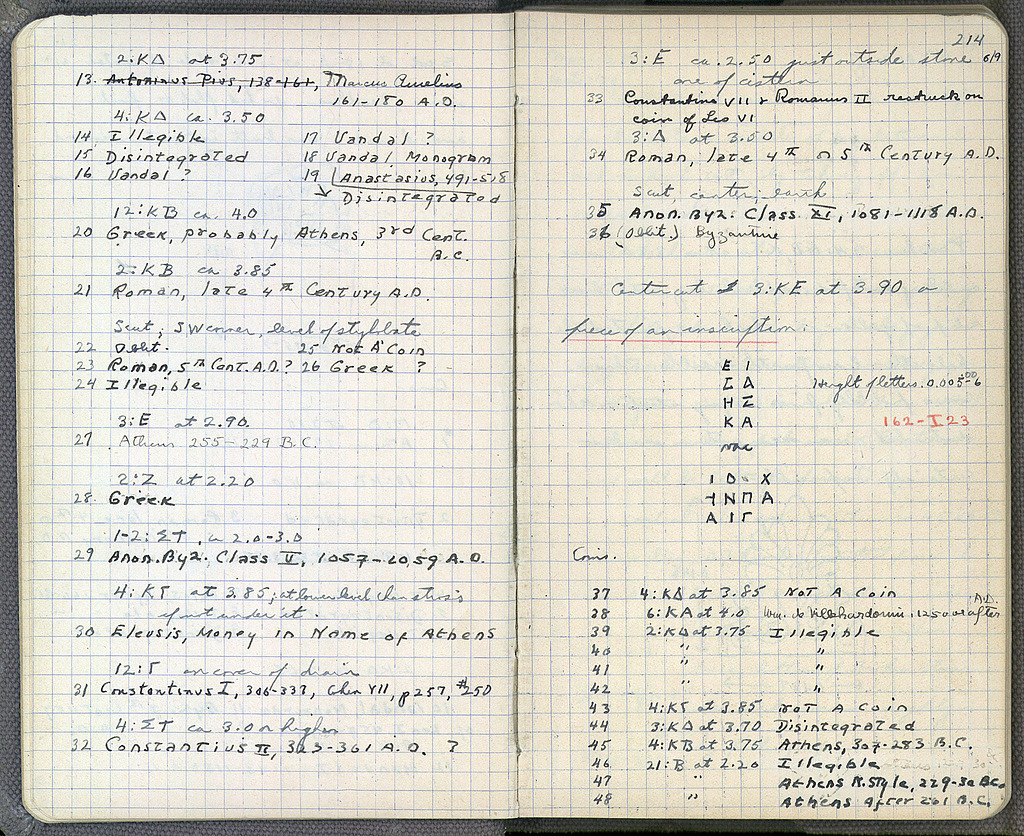 2:ΚΔ at 3.75
13. Antoninus Pius, 138-161, Marcus Aurelius
161-180 A.D.
4:ΚΔ ca. 3.50
14 Illegible 17 Vandal ?
15 Disintegrated 18 Vandal Monogram
16 Vandal ? 19 Anastasius, 491-518
Disintegrated
12:ΚΒ ca. 4.0
20 Greek, probably Athens, 3rd Cent.
B.C.
2:ΚΒ ca 3.85
21 Roman, late 4th Century A.D.
Scut; SW corner, level of stylobate
22 Oblit. 25 Not A Coin
23 Roman, 5th Cent. A.D.? 26 Greek ?
24 Illegible
3:Ε at 2.90
27 Athens 255-229 B.C.
2:Ζ at 2.20
28. Greek
1-2:ΣΤ, ca 2.0-3.0
29 Anon. Byz. Class V, 1057-1059 A.D.
4:ΚΓ at 3.85; at lower level
under it.
30 Eleusis, Money in Name of Athens
12:Γ on cover of drain
31 Constantinus I, 306-337, Cohen VII, p257, #250
4:ΣΤ ca 3.0 or higher
32 Constantius II, 323-361 A.D. ?
214
3:Ε ca. 2.50 just outside stone 6/9
one of cistern
33 Constantine VII & Romanus II restruck on
coin of Leo VI
3:Δ at 3.50
34 Roman, late 4th or 5th Century A.D.
Scut, center; earth
35 Anon. Byz. Class XI, 1081-1118 A.D.
36 (Oblit.) Byzantine
Center cut 3:ΚΕ at 3.90 a
piece of an inscription:
Ε Ι
Σ Δ Height of letters. 0.005-6
Η Σ
Κ Α 162-I 23
vac
Ι Ο Χ
Η Ν Π Α
Α Ι Γ
Coins.
37 4:ΚΔ at 3.85 Not A Coin
38 6:ΚΑ at 4.0 Wm. de Villehardouin, 1250 or after A.D.
39 2:ΚΔ at 3.75 Illegible
40 " "
41 " "
42 " "
43 4:ΚΓ at 3.85 Not A Coin
44 3:ΚΔ at 3.70 Disintegrated
45 4:ΚΒ at 3.75 Athens, 307-283 B.C.
46 21:Β at 2.20 Illegible
47 " Athens N. Style, 229-30 B.C.
48 " Athens After 261 B.C.